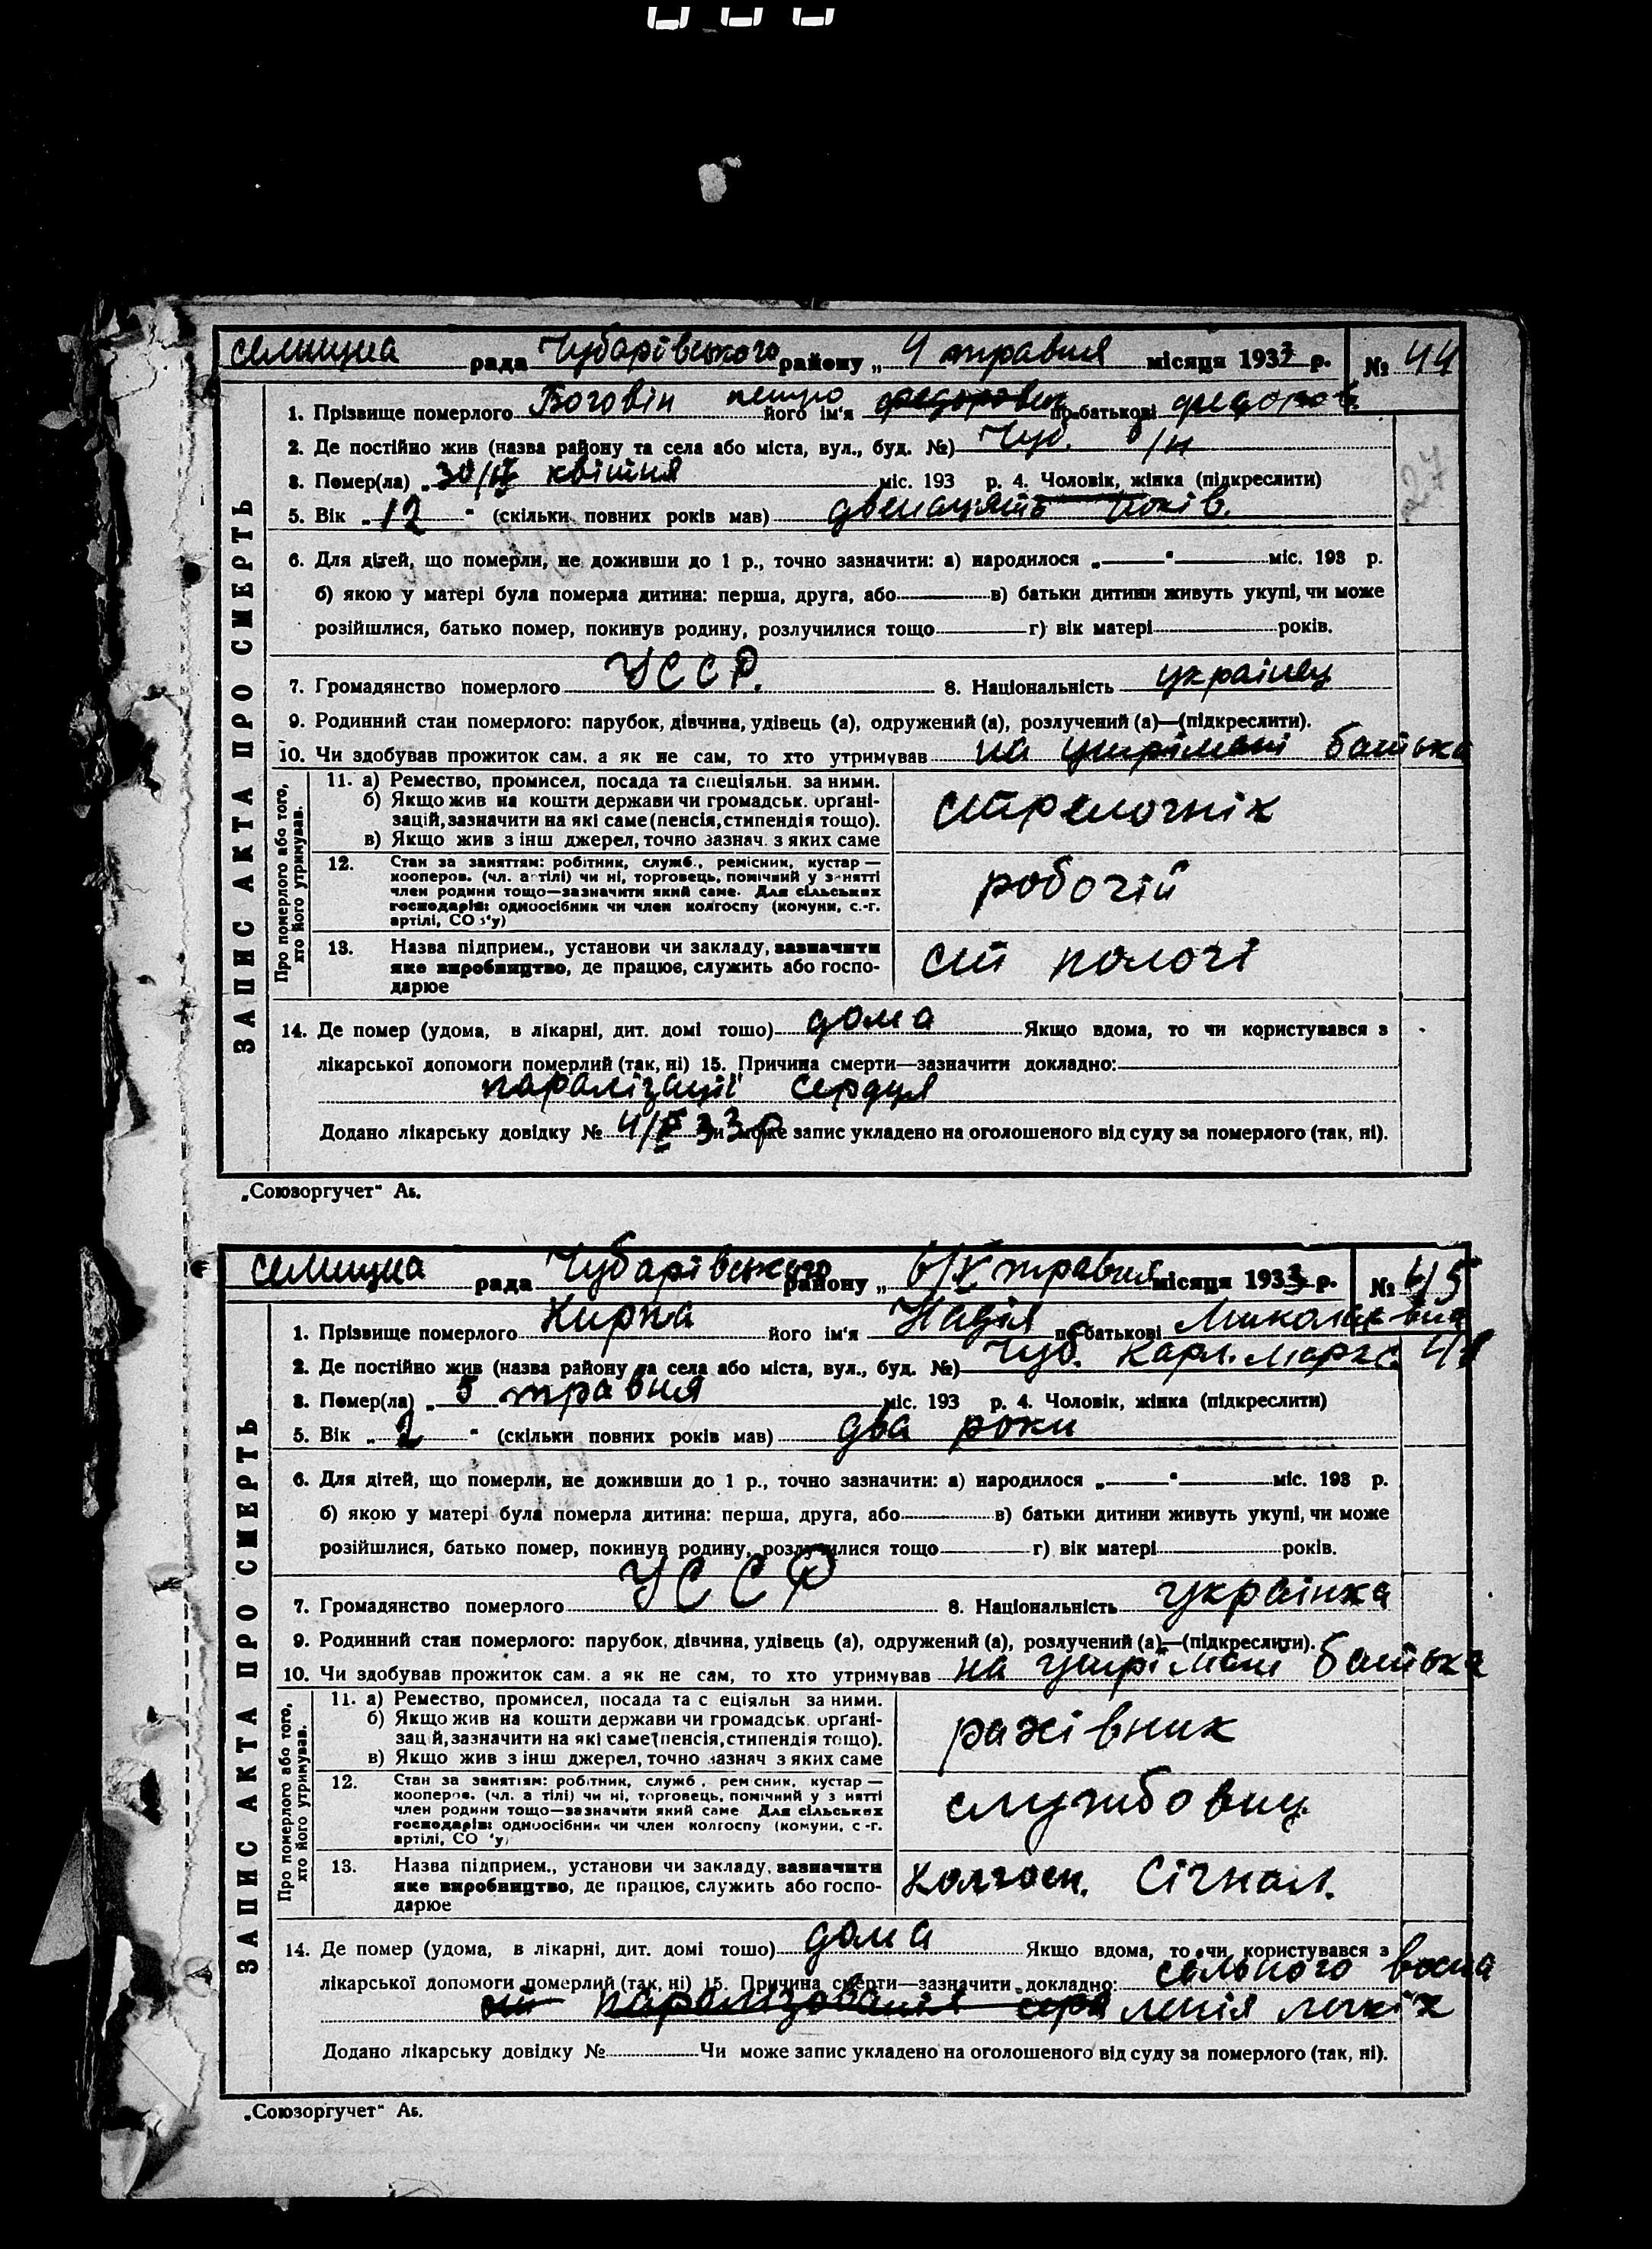 селищна рада Чубарівського району „ 4 травня місяця 1933 р. № 44
ЗАПИС АКТА ПРО СМЕРТЬ
1. Прізвище померлого Боговін його ім'я петро федорович по батькові федоров.
2. Де постійно жив (назва району та села або міста, вул., буд. №) Чуб. б/н
3. Помер(ла) „ 30/IV квітня міс. 193 р. 4. Чоловік, жінка (підкреслити)
5. Вік „ 12 " (скільки повних років мав) двенацять років.
6. Для дітей, що померли, не доживши до 1 р., точно зазначити: а) народилося „ — " — міс. 193 р.
б) якою у матері була померла дитина: перша, друга, або — в) батьки дитини живуть укупі, чи може
розійшлися, батько помер, покинув родину, розлучилися тощо — г) вік матері — років.
7. Громадянство померлого УССР. 8. Національність українец
9. Родинний стан померлого: парубок, дівчина, удівець (а), одружений (а), розлучений (а)—(підкреслити).
10. Чи здобував прожиток сам, а як не сам, то хто утримував на утрімані батька
Про померлого або того, хто його утримував.
11. а) Ремество, промисел, посада та спеціяльн. за ними.
б) Якщо жив на кошти держави чи громадськ. орґані-
зацій, зазначити на які саме (пенсія, стипендія тощо).
в) Якщо жив з інш джерел, точно зазнач. з яких саме
стрелочнік
12. Стан за заняттям: робітник, служб., ремісник, кустар —
кооперов. (чл. артілі) чи ні, торговець, помічний у занятті
член родини тощо—зазначити який саме. Для сільських
господарів: одноосібник чи член колгоспу (комуни, с.-г.
артілі, СОЗ'у)
робочій
13. Назва підприєм., установи чи закладу, зазначити
яке виробництво, де працює, служить або госпо-
дарює
ст пологі
14. Де помер (удома, в лікарні, дит. домі тощо) дома Якщо вдома, то чи користувався з
лікарської допомоги померлий (так, ні) 15. Причина смерти—зазначити докладно:
паралізації сердця
Додано лікарську довідку № 4/V 33 р Чи може запис укладено на оголошеного від суду за померлого (так, ні).
„Союзоргучет" Аѣ.
селищна рада Чубарівського району „ 6/V травня місяця 1933 р. № 45
ЗАПИС АКТА ПРО СМЕРТЬ
1. Прізвище померлого Кирпа його ім'я Надія по батькові Миколаївна
2. Де постійно жив (назва району та села або міста, вул., буд. №) Чуб. Карл. Маркс.
3. Помер(ла) „ 5 травня міс. 193 р. 4. Чоловік, жінка (підкреслити)
5. Вік „ 2 " (скільки повних років мав) два роки
6. Для дітей, що померли, не доживши до 1 р., точно зазначити: а) народилося „ — " — міс. 193 р.
б) якою у матері була померла дитина: перша, друга, або — в) батьки дитини живуть укупі, чи може
розійшлися, батько помер, покинув родину, розлучилися тощо — г) вік матері — років.
7. Громадянство померлого УССР 8. Національність українка
9. Родинний стан померлого: парубок, дівчина, удівець (а), одружений (а), розлучений (а)—(підкреслити).
10. Чи здобував прожиток сам, а як не сам, то хто утримував на утрімані батька
Про померлого або того, хто його утримував.
11. а) Ремество, промисел, посада та спеціяльн за ними.
б) Якщо жив на кошти держави чи громадськ. орґані-
зацій, зазначити на які саме (пенсія, стипендія тощо).
в) Якщо жив з інш джерел, точно зазнач з яких саме
рахівник
12. Стан за заняттям: робітник, служб., ремісник, кустар —
кооперов. (чл. артілі) чи ні, торговець, помічний у занятті
член родини тощо—зазначити який саме Для сільських
господарів: одноосібник чи член колгоспу (комуни, с.-г.
артілі, СОЗ'у)
службовец
13. Назва підприєм., установи чи закладу, зазначити
яке виробництво, де працює, служить або госпо-
дарює
Колгосп. Сігнал.
14. Де помер (удома, в лікарні, дит. домі тощо) дома Якщо вдома, то чи користувався з
лікарської допомоги померлий (так, ні) 15. Причина смерти—зазначити докладно: сільного воспа
ст паралізованія сер ленія легкіх
Додано лікарську довідку № Чи може запис укладено на оголошеного від суду за померлого (так, ні).
„Союзоргучет" Аѣ.